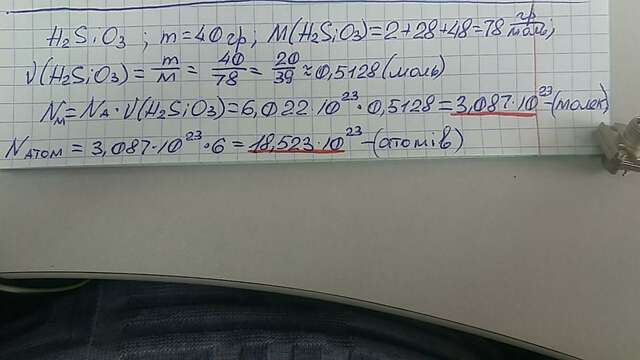 H₂SiO₃ ; m=40 гр; M(H₂SiO₃)=2+28+48=78 гр/моль;
ν(H₂SiO₃)= m/M = 40/78 = 20/39 ≈0,5128(моль)
Nм=NA·ν(H₂SiO₃)=6,022·10²³·0,5128=3,087·10²³-(молек)
Nатом = 3,087·10²³·6 = 18,523·10²³-(атомів)